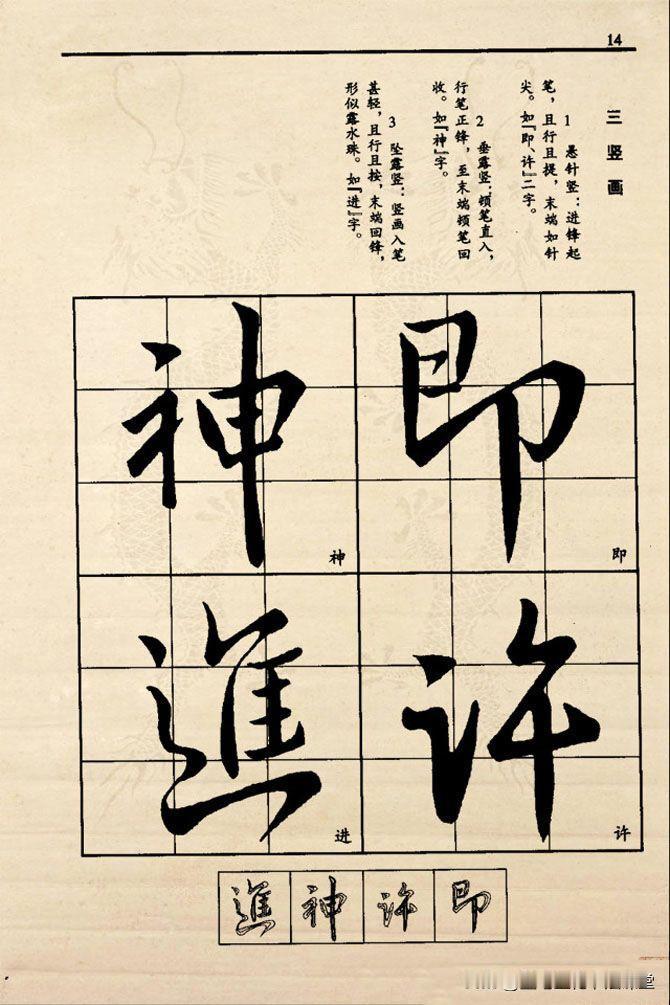 14
三 竖 画
1 悬针竖：进锋起
笔，且行且提，末端如针
尖。如『即、许』二字。
2 垂露竖：顿笔直入，
行笔正锋，至末端顿笔回
收。如『神』字。
3 坠露竖：竖画入笔
甚轻，且行且按，末端回锋，
形似露水珠。如『进』字。
即
即
許
许
神
神
進
进
即
許
神
進